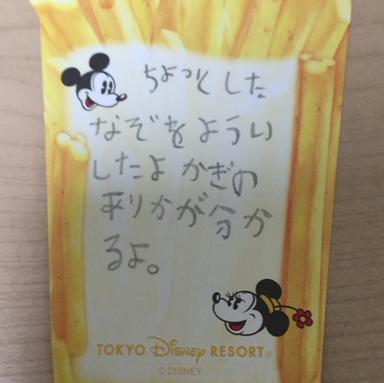 ちょっとした
なぞをようい
したよ かぎの
ありかが分か
るよ。
TOKYO Disney RESORT®
© DISNEY